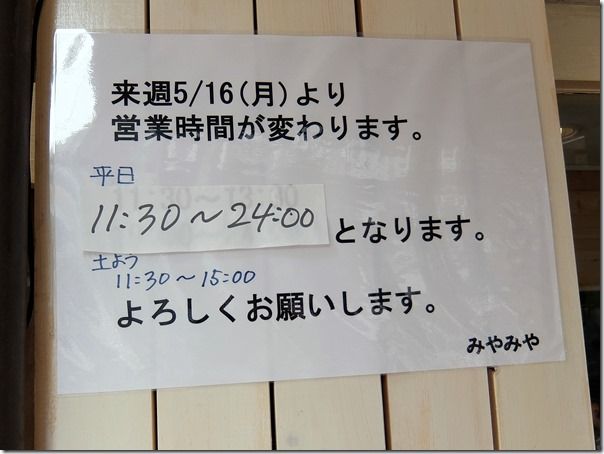 来週5/16(月)より
営業時間が変わります。
平日
11:30～24:00 となります。
土よう
11:30～15:00
よろしくお願いします。
みやみや